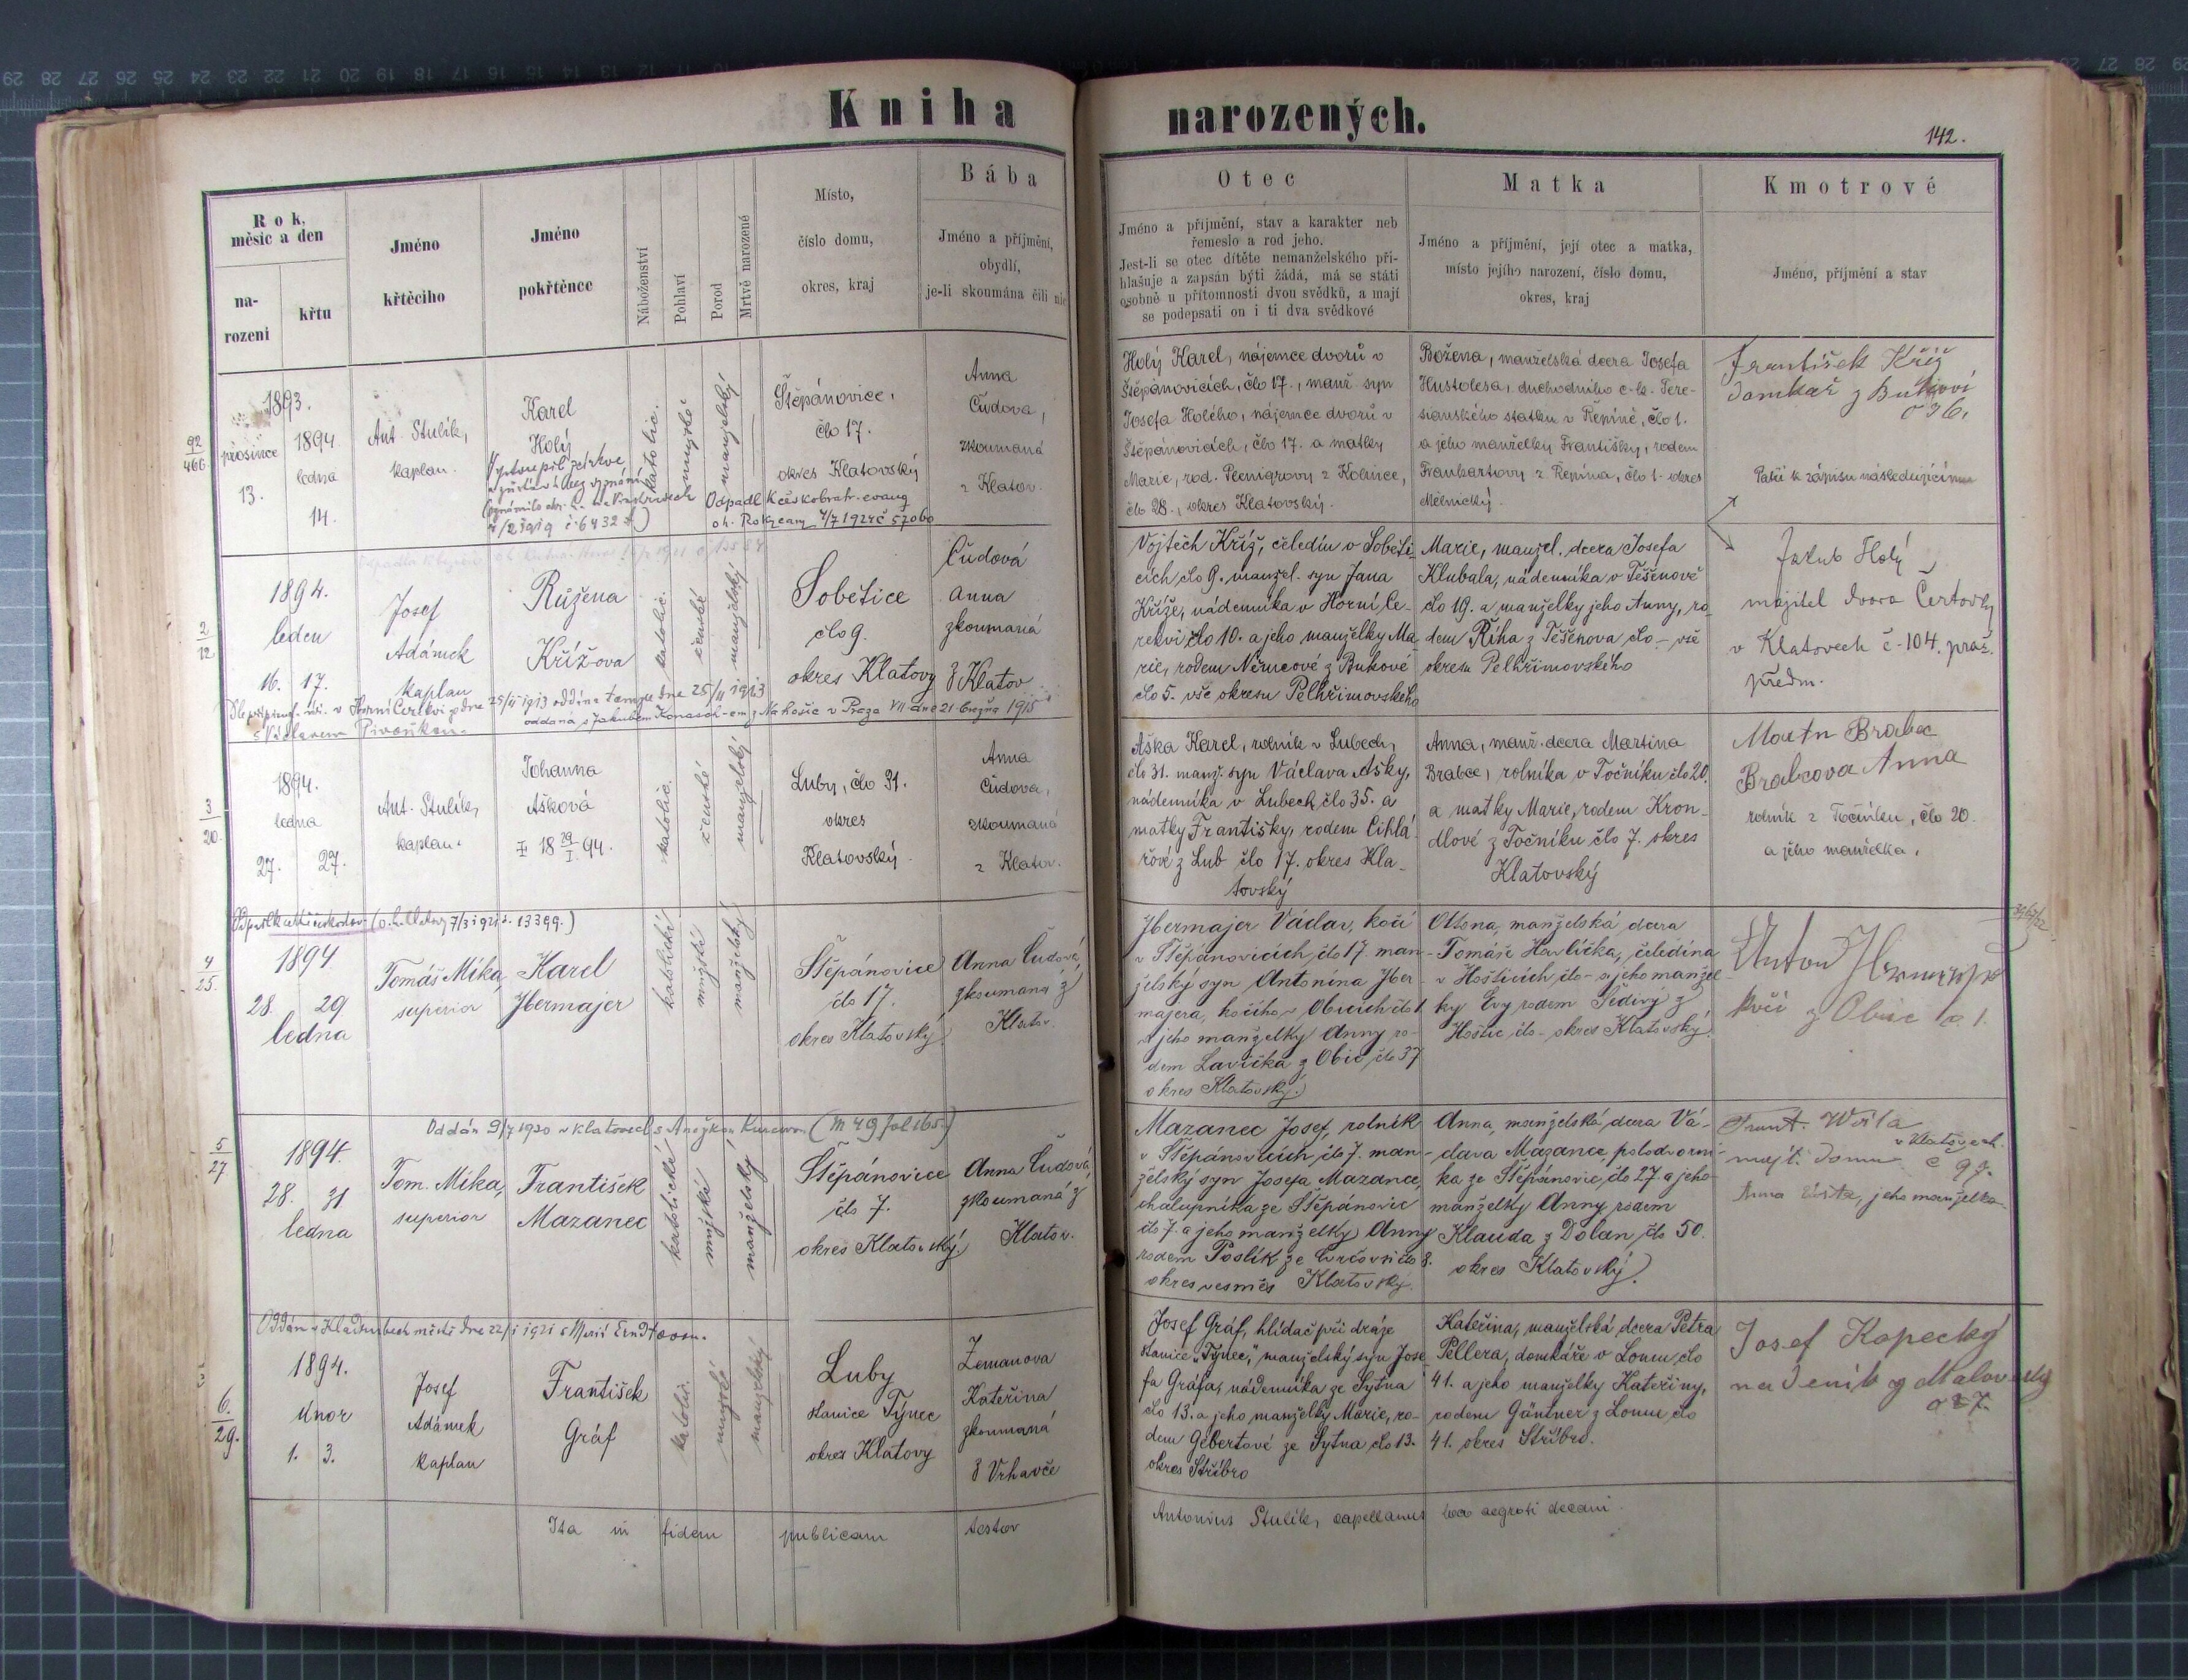 Kniha narozených.
142.
Rok, měsíc a den
narození
křtu
Jméno křtěcího
Jméno pokřtěnce
Náboženství
Pohlaví
Porod
Mrtvě narozené
Místo,
číslo domu,
okres, kraj
Bába
Jméno a příjmění,
obydlí,
je-li skoumána čili nic
Otec
Jméno a přijmění, stav a karakter neb
řemeslo a rod jeho.
Jest-li se otec dítěte nemanželského při-
hlašuje a zapsán býti žádá, má se státi
osobně u přítomnosti dvou svědků, a mají
se podepsati on i ti dva svědkové
Matka
Jméno a příjmění, její otec a matka,
místo jejího narození, číslo domu,
okres, kraj
Kmotrové
Jméno, příjmění a stav
92
466
1893.
prosince
13.
1894
ledna
14.
Ant. Stulík,
kaplan.
Karel
Holý
Vystoupil z církve
a zůstává bez vyznání
katolic.
mužské
manželský
Odpadl k českobratr. evang
Štěpánovice,
člo 17.
okres Klatovský
Anna
Čudova,
zkoumaná
z Klatov.
Holý Karel, nájemce dvorů v
Štěpánovicích, člo 17., manž. syn
Josefa Holého, nájemce dvorů v
Štěpánovicích, člo 17. a matky
Marie, rod. z Kolince,
člo 28., okres Klatovský.
Božena, manželská dcera Josefa
Hustolesa, duchodního c. k. Tere-
sianského statku v Řepíně, člo 1.
a jeho manželky Františky, rodem
z Řepína, člo 1. okres
Mělnický.
František Kříž
domkář z Bukové
č 36.
Patří k zápisu následujícímu
2
12
1894.
leden
16. 17.
Josef
Adámek
kaplan
Růžena
Křížova
katolic.
ženské
manželský
Sobětice
člo 9.
okres Klatovy
Čudová
Anna
zkoumaná
z Klatov
Vojtěch Kříž, čeledín v Soběti-
cích člo 9. manžel. syn Jana
Kříže, nádenníka v Horní Ce-
rekvi člo 10. a jeho manželky Ma-
rie, rodem Němcové z Bukové
člo 5. vše okresu Pelhřimovského
Marie, manžel. dcera Josefa
Klubala, nádenníka v Těšenově
člo 19. a manželky jeho Anny, ro-
dem Říha z Těšenova člo - vše
okresu Pelhřimovského
Jakub Holý
majitel dvora Čertovky
v Klatovech č. 104. praž.
předm.
oddána s Jakubem v Praze VII dne 21 března 1915
s Václavem Pivoňkou.
3
20
1894.
ledna
27. 27.
Ant. Stulík,
kaplan.
Johanna
Ašková
katolic.
ženské
manželský
Luby, člo 31.
okres
Klatovský.
Anna
Čudova,
zkoumaná
z Klatov.
Aška Karel, rolník v Lubech,
člo 31. manž. syn Václava Ašky,
nádenníka v Lubech člo 35. a
matky Františky, rodem Cihlá-
řové z Lub člo 17. okres Kla-
tovský
Anna, manž. dcera Martina
Brabce, rolníka v Točníku člo 20.
a matky Marie, rodem Kron-
dlové z Točníku člo 7. okres
Klatovský
Martn Brabec
Brabcova Anna
rolník z Točníku, člo 20.
a jeho manželka.
4
25
1894
28. 29
ledna
Tomáš Míka,
superior
Karel
Jbermajer
katolické
mužské
manželský
Štěpánovice
čís 17.
okres Klatovský
Anna Čudová
zkoumaná z
Klatov
Jbermajer Václav, kočí
v Štěpánovicích čís 17. man-
želský syn Antonína Jber-
majera, kočího v Obicích čís 1
a jeho manželky Anny ro-
dem Lavička z Obic čís 37
okres Klatovský.
manželská dcera
Tomáše Havlíčka, čeledína
v Hošticích čís - a jeho manžel-
ky Evy rodem Šedivý z
Hoštic čís - okres Klatovský.
Anton
kočí z Obic č. 1.
5
27
1894.
28. 31
ledna
Tom. Míka,
superior
František
Mazanec
katolické
mužské
manželský
Štěpánovice
čís 7.
okres Klatovský.
Anna Čudová
zkoumaná z
Klatov.
Mazanec Josef, rolník
v Štěpánovicích, čís 7. man-
želský syn Josefa Mazance,
chalupníka ze Štěpánovic
čís 7. a jeho manželky Anny
rodem Poslík ze čís 8.
okres vesměs Klatovský.
Anna, manželská dcera Vá-
clava Mazance, polodvorní-
ka ze Štěpánovic, čís 27 a jeho
manželky Anny rodem
Klauda z Dolan, čís 50.
okres Klatovský.
v Klatovech
majit. domu
jeho manželka
6.
29.
1894.
únor
1. 3.
Josef
Adámek
kaplan
František
Gráf
katolic.
mužské
manželský
Luby
stanice Týnec
okres Klatovy
Zemanova
Kateřina
zkoumaná
z Vrhavče
Josef Gráf, hlídač při dráze
stanice „Týnec," manželský syn Jose-
fa Gráfa, nádenníka ze Sytna
člo 13. a jeho manželky Marie, ro-
dem Gebertové ze Sytna člo 13.
okres Stříbro
Kateřina, manželská dcera Petra
Pellera, domkáře v Lomu člo
41. a jeho manželky Kateřiny,
rodem Güntner z Lomu člo
41. okres Stříbro.
Josef Kopecký
nadeník z
Ita in fidem publicam testor
Antonius Stulík, capellanus loco aegroti decani.